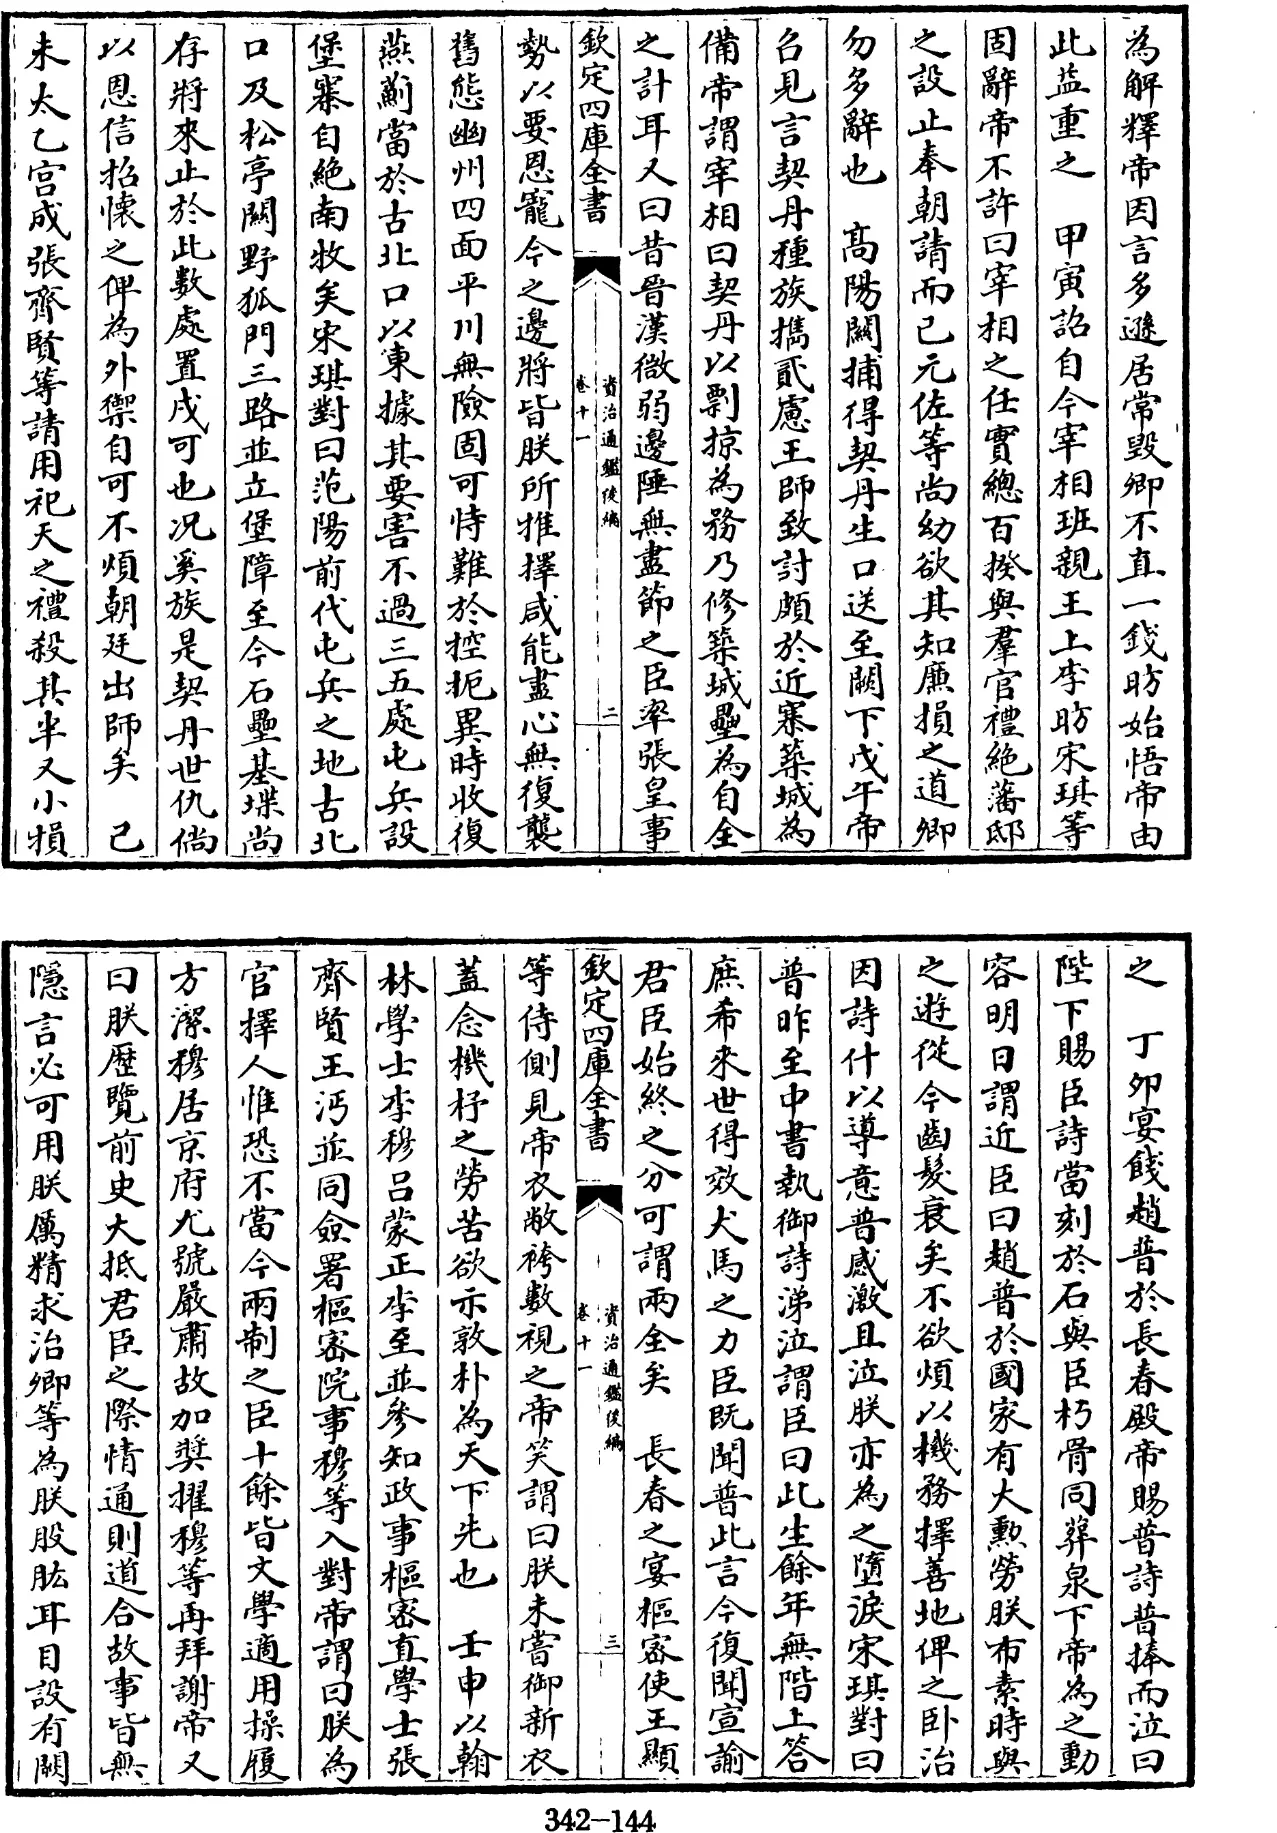 為解釋帝因言多遜居常毁卿不直一錢昉始悟帝由
此益重之　甲寅詔自今宰相班親王上李昉宋琪等
固辭帝不許曰宰相之任實總百揆與羣官禮絶藩邸
之設止奉朝請而已元佐等尚幼欲其知廉損之道卿
勿多辭也　髙陽關捕得契丹生口送至闕下戊午帝
召見言契丹種族攜貳慮王師致討頗於近寨築城為
備帝謂宰相曰契丹以剽掠為務乃修築城壘為自全
之計耳又曰昔晉漢微弱邊陲無盡節之臣率張皇事
欽定四庫全書
資治通鑑後編
卷十一
二
勢以要恩寵今之邊將皆朕所推擇咸能盡心無復襲
舊態幽州四面平川無險固可恃難於控扼異時收復
燕薊當於古北口以東據其要害不過三五處屯兵設
堡寨自絶南牧矣宋琪對曰范陽前代屯兵之地古北
口及松亭關野狐門三路並立堡障至今石壘基堞尚
存將來止於此數處置戍可也况奚族是契丹世仇倘
以恩信招懷之俾為外禦自可不煩朝廷出師矣　己
未太乙宫成張齊賢等請用祀天之禮殺其半又小損
之　丁卯宴餞趙普於長春殿帝賜普詩普捧而泣曰
陛下賜臣詩當刻於石與臣朽骨同葬泉下帝為之動
容明日謂近臣曰趙普於國家有大勲勞朕布素時與
之遊從今齒髮衰矣不欲煩以機務擇善地俾之卧治
因詩什以導意普感激且泣朕亦為之墮淚宋琪對曰
普昨至中書執御詩涕泣謂臣曰此生餘年無階上答
庶希來世得效犬馬之力臣既聞普此言今復聞宣諭
君臣始終之分可謂兩全矣　長春之宴樞密使王顯
欽定四庫全書
資治通鑑後編
卷十一
三
等侍側見帝衣敝袴數視之帝笑謂曰朕未嘗御新衣
葢念機杼之勞苦欲示敦朴為天下先也　壬申以翰
林學士李穆呂蒙正李至並參知政事樞密直學士張
齊賢王沔並同僉署樞密院事穆等入對帝謂曰朕為
官擇人惟恐不當今兩制之臣十餘皆文學適用操履
方潔穆居京府尤號嚴肅故加奬擢穆等再拜謝帝又
曰朕歴覽前史大抵君臣之際情通則道合故事皆無
隱言必可用朕厲精求治卿等為朕股肱耳目設有闕
342-144